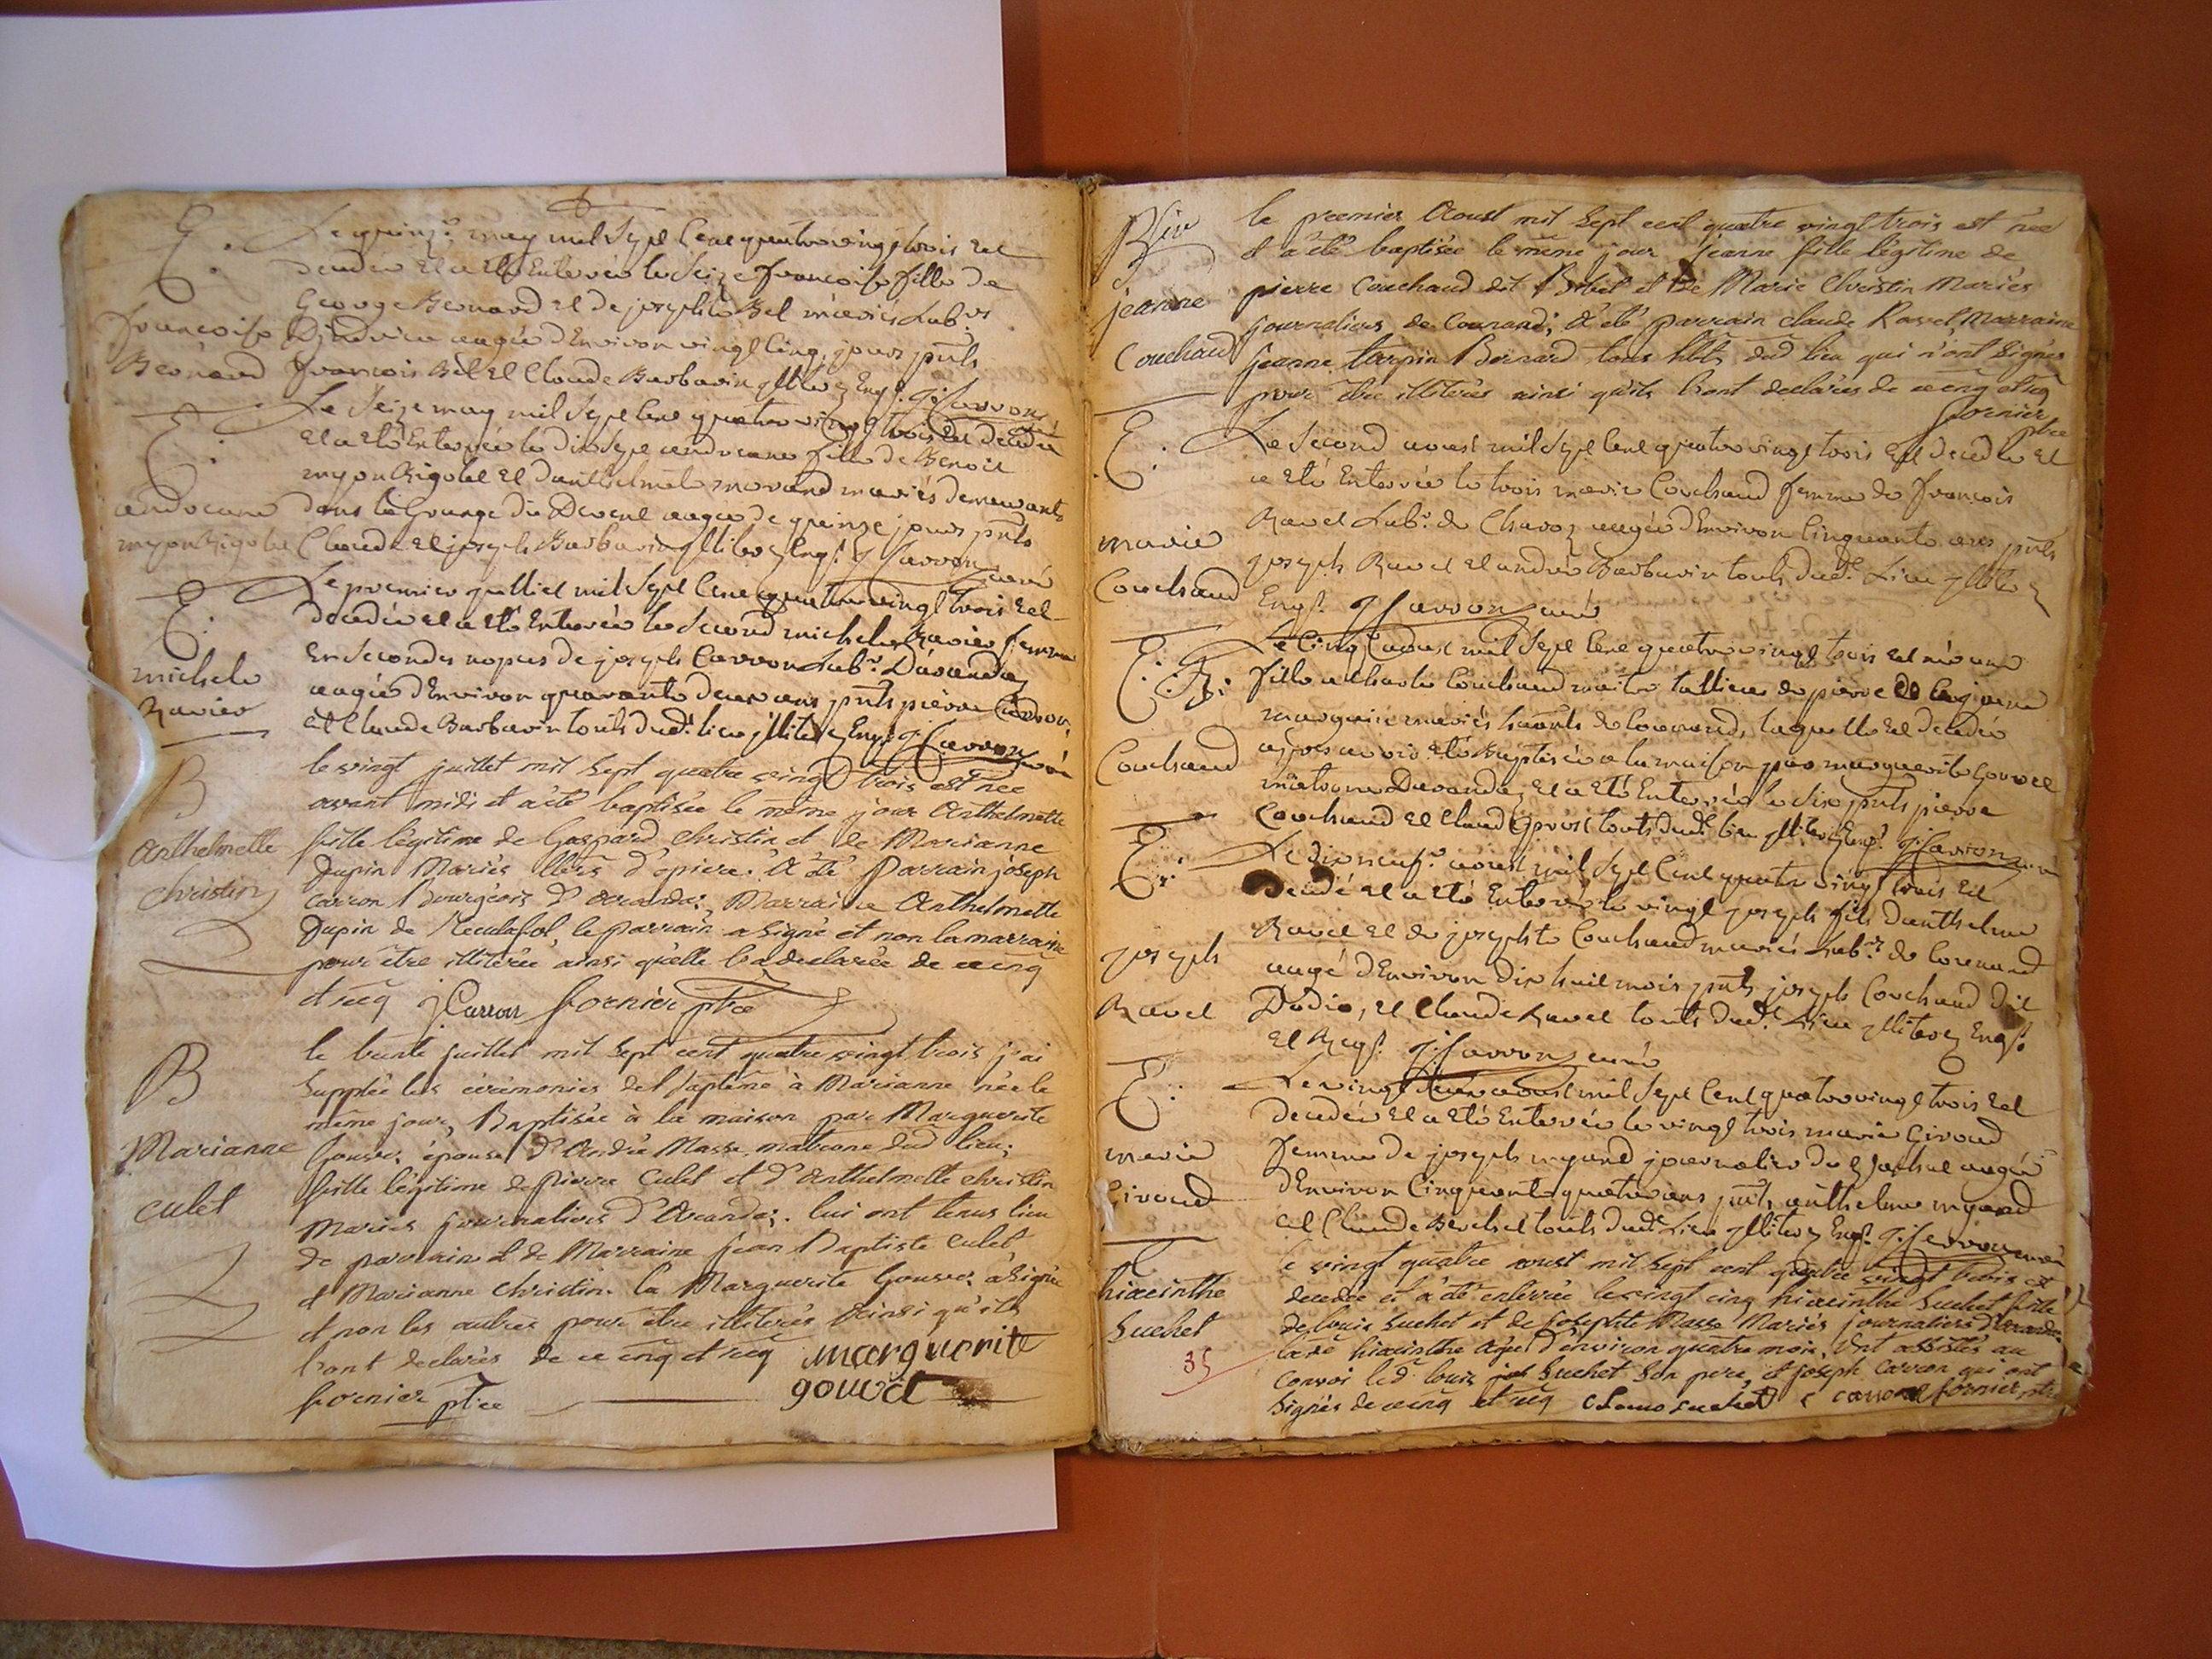 E.
françoise
Bernard
Le quinze may mil sept cent quatrevingt trois est
decedée et a eté Enterrée le seize françoise fille de
George Bernard et de josephte Bel mariés Lab.rs
D'indrieu aagée d'Environ vingt cinq jours pnts
françois Bel et Claude Barbarin illiterez Enqs. J. Carron
E.
androeane
myon Rigolet
Le seize may mil sept cent quatre vingt trois est decedée
et a eté Enterrée le dix sept androeane fille de Benoit
myon Rigolet et d'anthelmete morand mariés demeurants
dans la Grange du Devent aagée de quinze jours pnts
Claude et joseph Barbarin illiterez Enqs. J. Carron curé
E.
michele
Ravier
Le premier juilliet mil sept cent quatrevingt trois est
decedée et a eté Enterrée le second michele Ravier femme
En secondes nopces de joseph Carron Lab.r D'arandaz
aagée d'Environ quarante deux ans pnts pierre Carron
et Claude Barbarin touts dud. lieu illiterez Enqs. J. Carron curé
B
Anthelmette
christin
le vingt juillet mil sept quatre vingt trois est née
avant midi et a été baptisée le même jour Anthelmette
fille légitime de Gaspard christin et de Marianne
Dupin Mariés d'opiere. A été Parrain joseph
Carron Bourgeois d'arandaz, Marraine Anthelmette
Dupin de Reculafol, le parrain a signé et non la marraine
pour être illiterée ainsi qu'elle l'a declarée de ce enq
et req J Carron fornier ptre
B
Marianne
culet
le trente juillet mil sept cent quatre vingt trois j'ai
supplée les cérémonies del Baptême à Marianne née le
même jour, Baptisée à la maison par Marguerite
Gouvet épouse d'André Masse, matrone dud lieu;
fille légitime de Pierre Culet et d'Anthelmette christin
Mariés journaliers d'Arandaz. lui ont tenus lieu
de parrain et de Marraine jean Baptiste culet
et Marianne christin. la Marguerite Gouvet a signée
et non les autres pour être illiterés ainsi qu'ils
l'ont declarés de ce enq et req marguerite
fornier ptre gouvet
B
jeanne
Couchaud
le premier Aoust mil sept cent quatre vingt trois est née
et a été baptisée le même jour jeanne fille légitime de
pierre Couchaud dit et de Marie Christin Mariés
journaliers de Conrand; A été parrain claude Ravet, Marraine
jeanne turpin Bernard tous hbts dud lieu qui n'ont signés
pour être illiterés ainsi qu'ils l'ont declarés de ce enq et req
fornier
ptre
E.
marie
Couchaud
Le second aoust mil sept cent quatrevingt trois est decedée et
a eté Enterrée le trois marie Couchaud femme de françois
Ravet Lab.r de Chavoz aagée d'Environ cinquante ans pnts
joseph Ravet et andré Barbarin touts dud. Lieu illiterez
Enqs. J. Carron curé
E. B.
Couchaud
Le cinq aoust mil sept cent quatre vingt trois est née une
fille a Charle Couchaud maitre tallieur de pierre et
marguin mariés hbants de Conrand, laquelle est decedée
apres avoir eté Baptisée a la maison par marguerite Gouvet
matrone D'arandaz et a eté Enterrée le six pnts pierre
Couchaud et Claude touts dud. lieu illiterez Enqs. J. Carron curé
E.
joseph
Ravet
Le dix neuf aoust mil sept cent quatre vingt trois est
decedé et a eté Enterré le vingt joseph fils d'anthelme
Ravet et de josephte Couchaud mariés Lab.rs de Conrand
aagé d'Environ dix huit mois pnts joseph Couchaud dit
Dodie, et Claude Ravet touts dud. Lieu illiterez Enqs.
et Reqs. J. Carron curé
E.
marie
Giroud
Le vingt deux aoust mil sept cent quatrevingt trois est
decedée et a eté Enterrée le vingt trois marie Giroud
femme de joseph myand journalier du aagée
d'Environ cinquante quatre ans pnts anthelme myand
et Claude Berchet touts dud. Lieu illiterez Enqs. J. Carron curé
E
hiacinthe
Suchet
35
le vingt quatre aoust mil sept cent quatre vingt trois est
decedée et a été enterrée le vingt cinq hiacinthe Suchet fille
de louis Suchet et de josephte Masse Mariés journaliers d'Arandaz
lade hiacinthe agée d'environ quatre mois. Ont assistés au
convoi led. louis Suchet son pere, et joseph Carron qui ont
signés de ce enq et req Louis suchet Carron fornier ptre